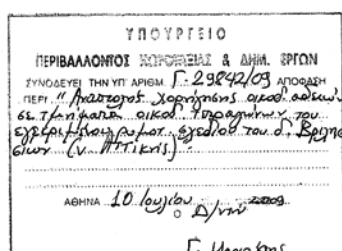 ΥΠΟΥΡΓΕΙΟ
ΠΕΡΙΒΑΛΛΟΝΤΟΣ ΧΩΡΟΤΑΞΙΑΣ & ΔΗΜ. ΕΡΓΩΝ
ΣΥΝΟΔΕΥΕΙ ΤΗΝ ΥΠ ΑΡΙΘΜ Γ-29842/09 ΑΠΟΦΑΣΗ
ΠΕΡΙ " Αναστολής χορήγησης οικοδ. αδειών
σε τμήματα οικοδ. τετραγώνων του
εγκεκριμένου ρυμοτ. σχεδίου του δ. Βριλησ
σίων (ν. Αττικής)
ΑΘΗΝΑ 10 Ιουλίου 2009
Ο Δ/ντής